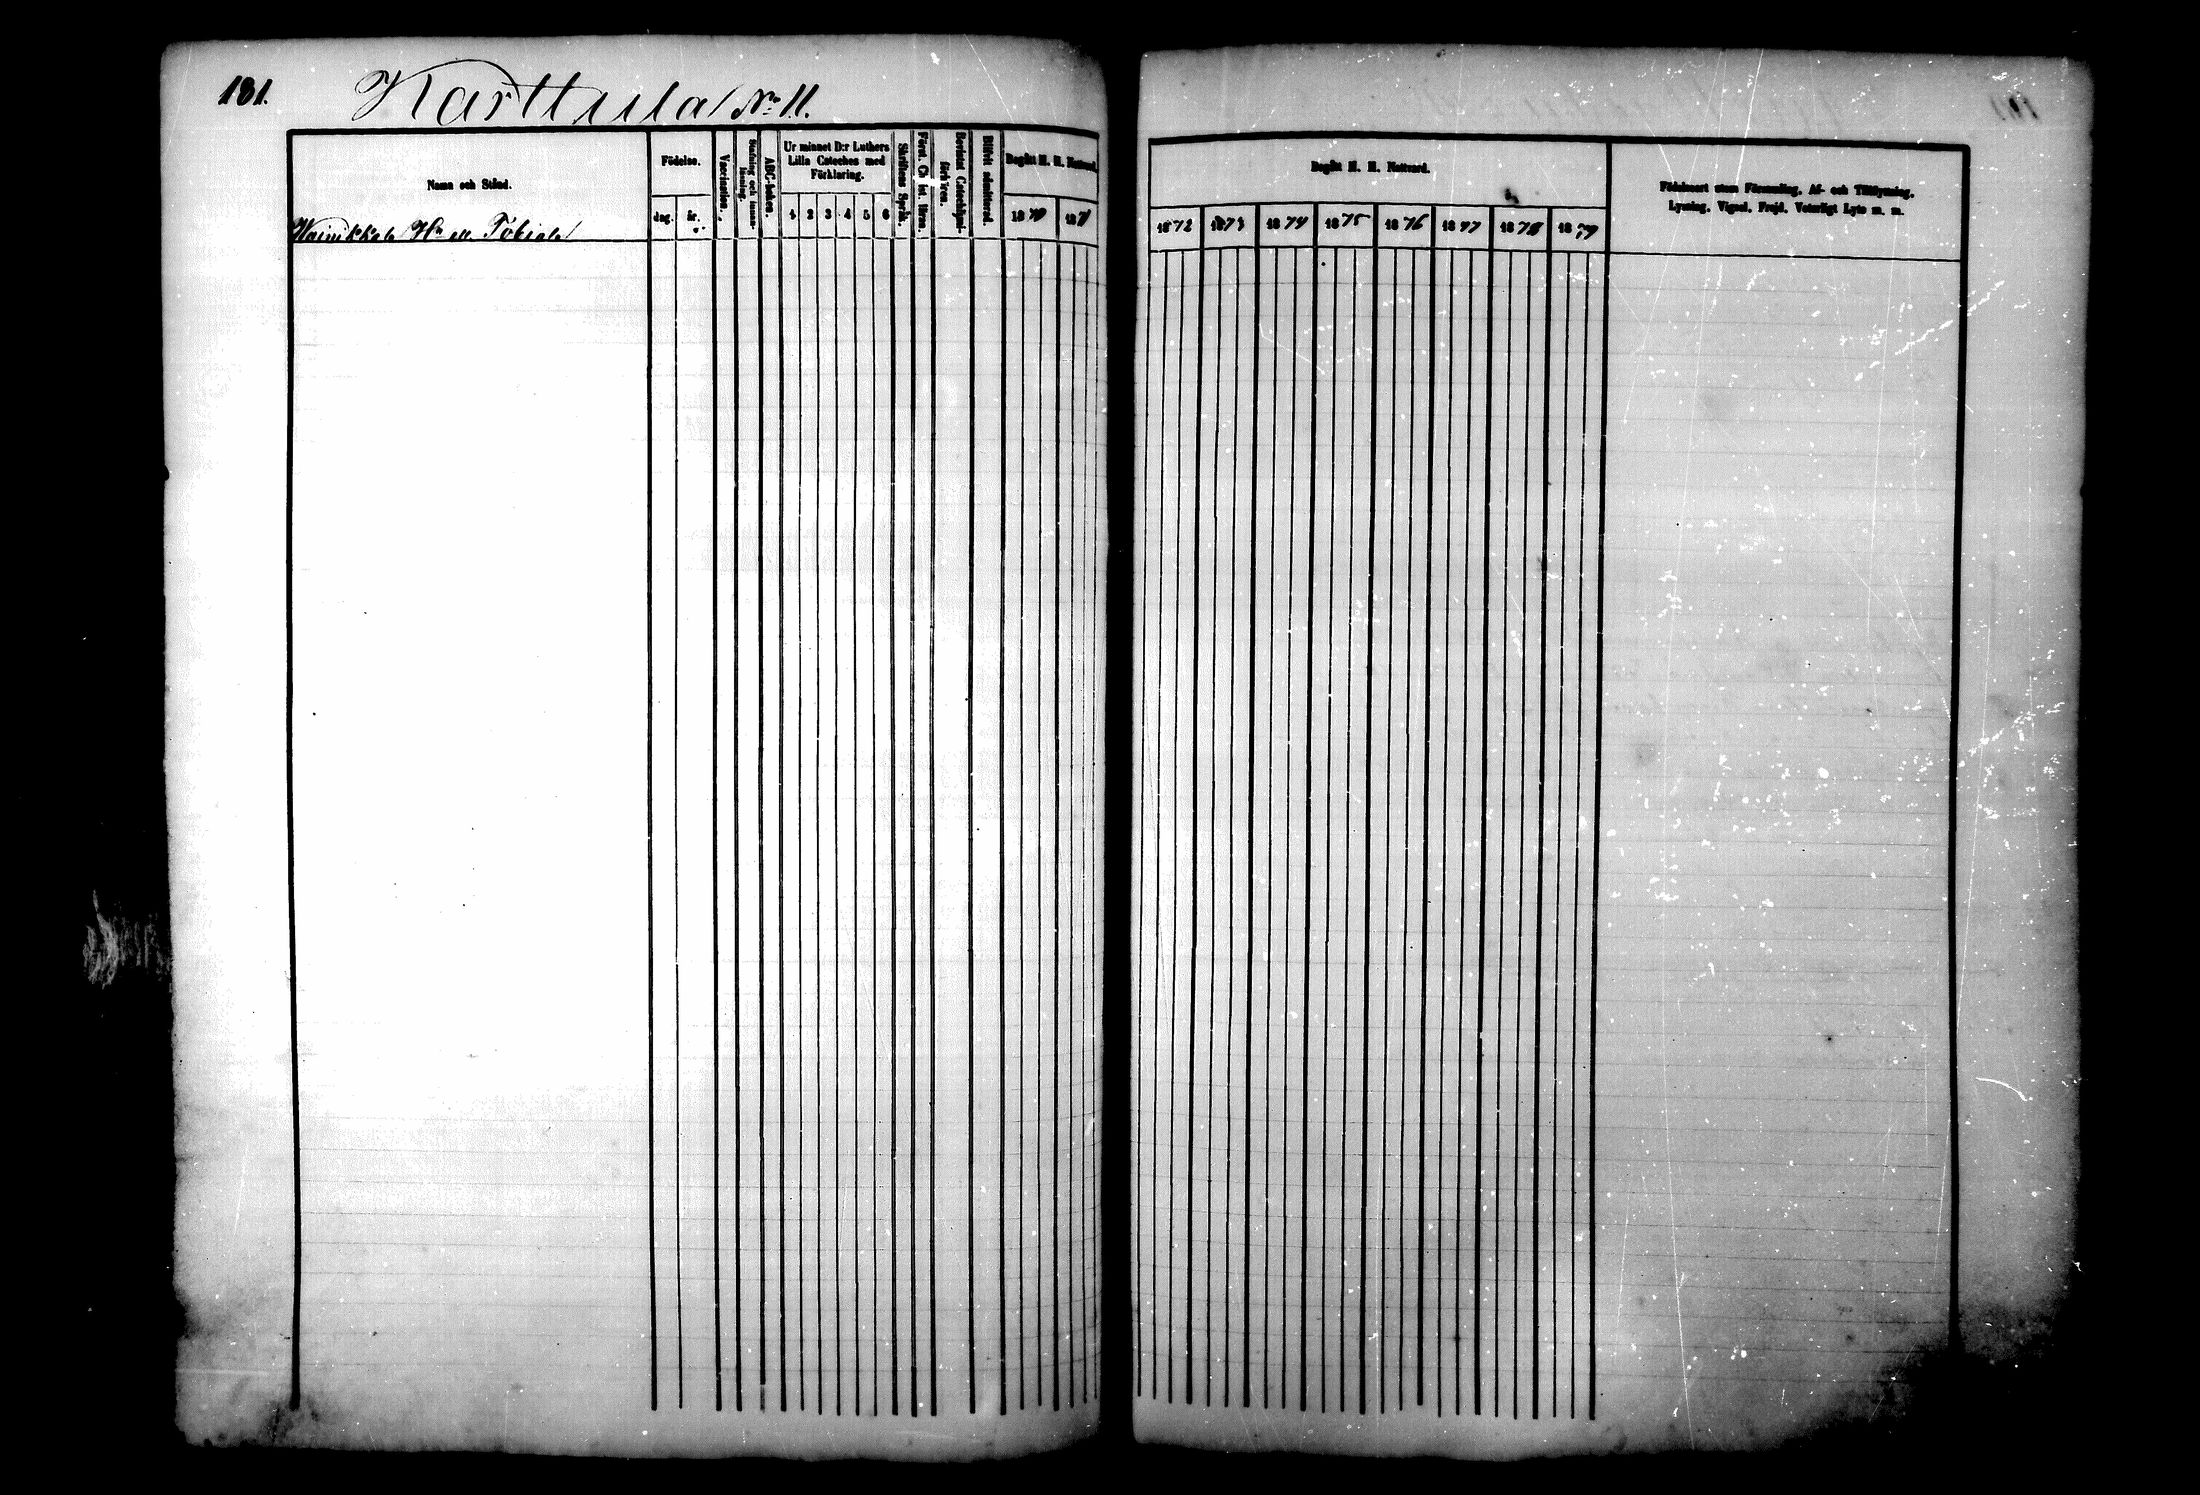 181.
Karttula No 11.
Namn och Stånd.
Födelse.
dag.
år.
Vaccination.
Stafning och innan-
läsning.
ABC-boken.
Ur minnet D:r Luthers
Lilla Cateches med
Förklaring.
1 2 3 4 5 6
Skriftens Språk.
Först. Ch ist. läran.
Bevistat Catechismi-
förh'ren.
Blifvit admitterad.
Begått H. H. Nattvard.
1870 1871
Tobiala
Begått H. H. Nattvard.
1872 1873 1874 1875 1876 1877 1878 1879
Födelseort utom Församling, Af- och Tillflyttning,
Lysning, Vigsel, Frejd, Veterligt Lyte m. m.